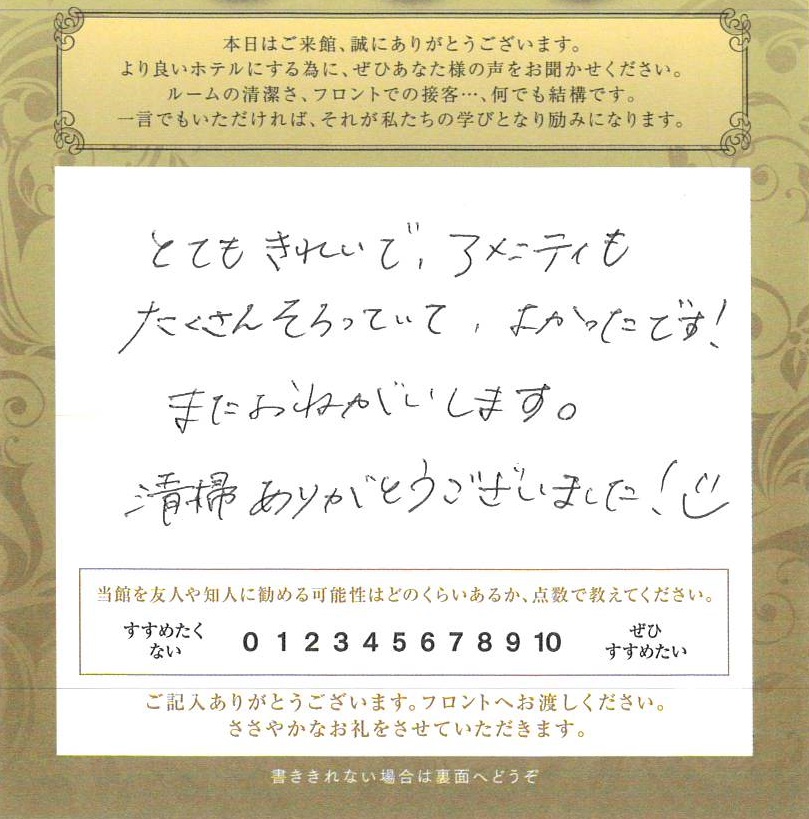 本日はご来館、誠にありがとうございます。
より良いホテルにする為に、ぜひあなた様の声をお聞かせください。
ルームの清潔さ、フロントでの接客…、何でも結構です。
一言でもいただければ、それが私たちの学びとなり励みになります。
とてもきれいで、アメニティも
たくさんそろっていて、よかったです!
またおねがいします。
清掃ありがとうございました!
当館を友人や知人に勧める可能性はどのくらいあるか、点数で教えてください。
すすめたく
ない
0 1 2 3 4 5 6 7 8 9 10
ぜひ
すすめたい
ご記入ありがとうございます。フロントへお渡しください。
ささやかなお礼をさせていただきます。
書ききれない場合は裏面へどうぞ